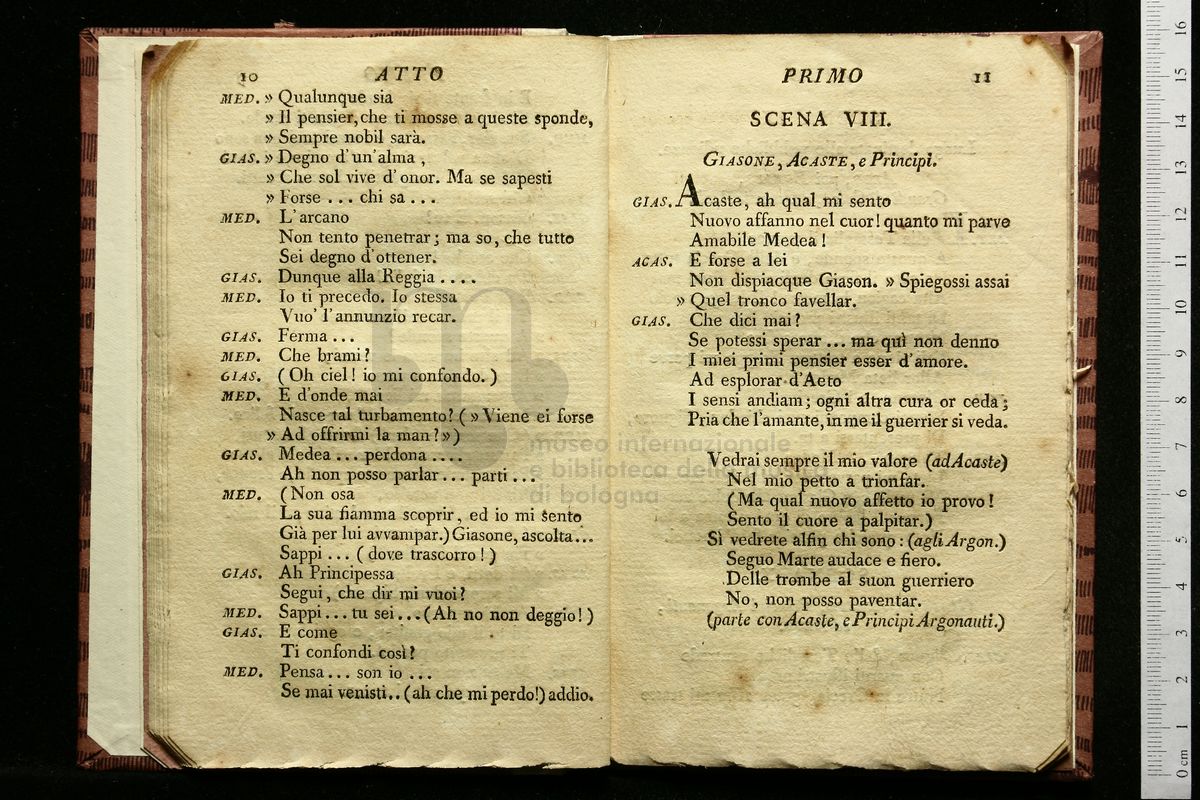 10 ATTO
MED. » Qualunque sia
» Il pensier, che ti mosse a queste sponde,
» Sempre nobil sarà.
GIAS. » Degno d'un'alma ,
» Che sol vive d'onor. Ma se sapesti
» Forse ... chi sa ...
MED. L'arcano
Non tento penetrar; ma so, che tutto
Sei degno d'ottener.
GIAS. Dunque alla Reggia ....
MED. Io ti precedo. Io stessa
Vuo' l'annunzio recar.
GIAS. Ferma ...
MED. Che brami?
GIAS. (Oh ciel! io mi confondo.)
MED. E d'onde mai
Nasce tal turbamento? (» Viene ei forse
» Ad offrirmi la man?»)
GIAS. Medea ... perdona ....
Ah non posso parlar... parti ...
MED. (Non osa
La sua fiamma scoprir, ed io mi sento
Già per lui avvampar.) Giasone, ascolta...
Sappi ... (dove trascorro!)
GIAS. Ah Principessa
Segui, che dir mi vuoi?
MED. Sappi... tu sei ...(Ah no non deggio!)
GIAS. E come
Ti confondi così?
MED. Pensa... son io ...
Se mai venisti.. (ah che mi perdo!) addio.
PRIMO 11
SCENA VIII.
GIASONE, ACASTE, e Principi.
GIAS. Acaste, ah qual mi sento
Nuovo affanno nel cuor! quanto mi parve
Amabile Medea!
ACAS. E forse a lei
Non dispiacque Giason. » Spiegossi assai
» Quel tronco favellar.
GIAS. Che dici mai?
Se potessi sperar ... ma quì non denno
I miei primi pensier esser d'amore.
Ad esplorar d'Aeto
I sensi andiam; ogni altra cura or ceda;
Pria che l'amante, in me il guerrier si veda.
Vedrai sempre il mio valore (ad Acaste)
Nel mio petto a trionfar.
(Ma qual nuovo affetto io provo!
Sento il cuore a palpitar.)
Sì vedrete alfin chi sono: (agli Argon.)
Seguo Marte audace e fiero.
Delle trombe al suon guerriero
No, non posso paventar.
(parte con Acaste, e Principi Argonauti.)
museo internazionale
e biblioteca della musica
di bologna
0 cm 1 2 3 4 5 6 7 8 9 10 11 12 13 14 15 16